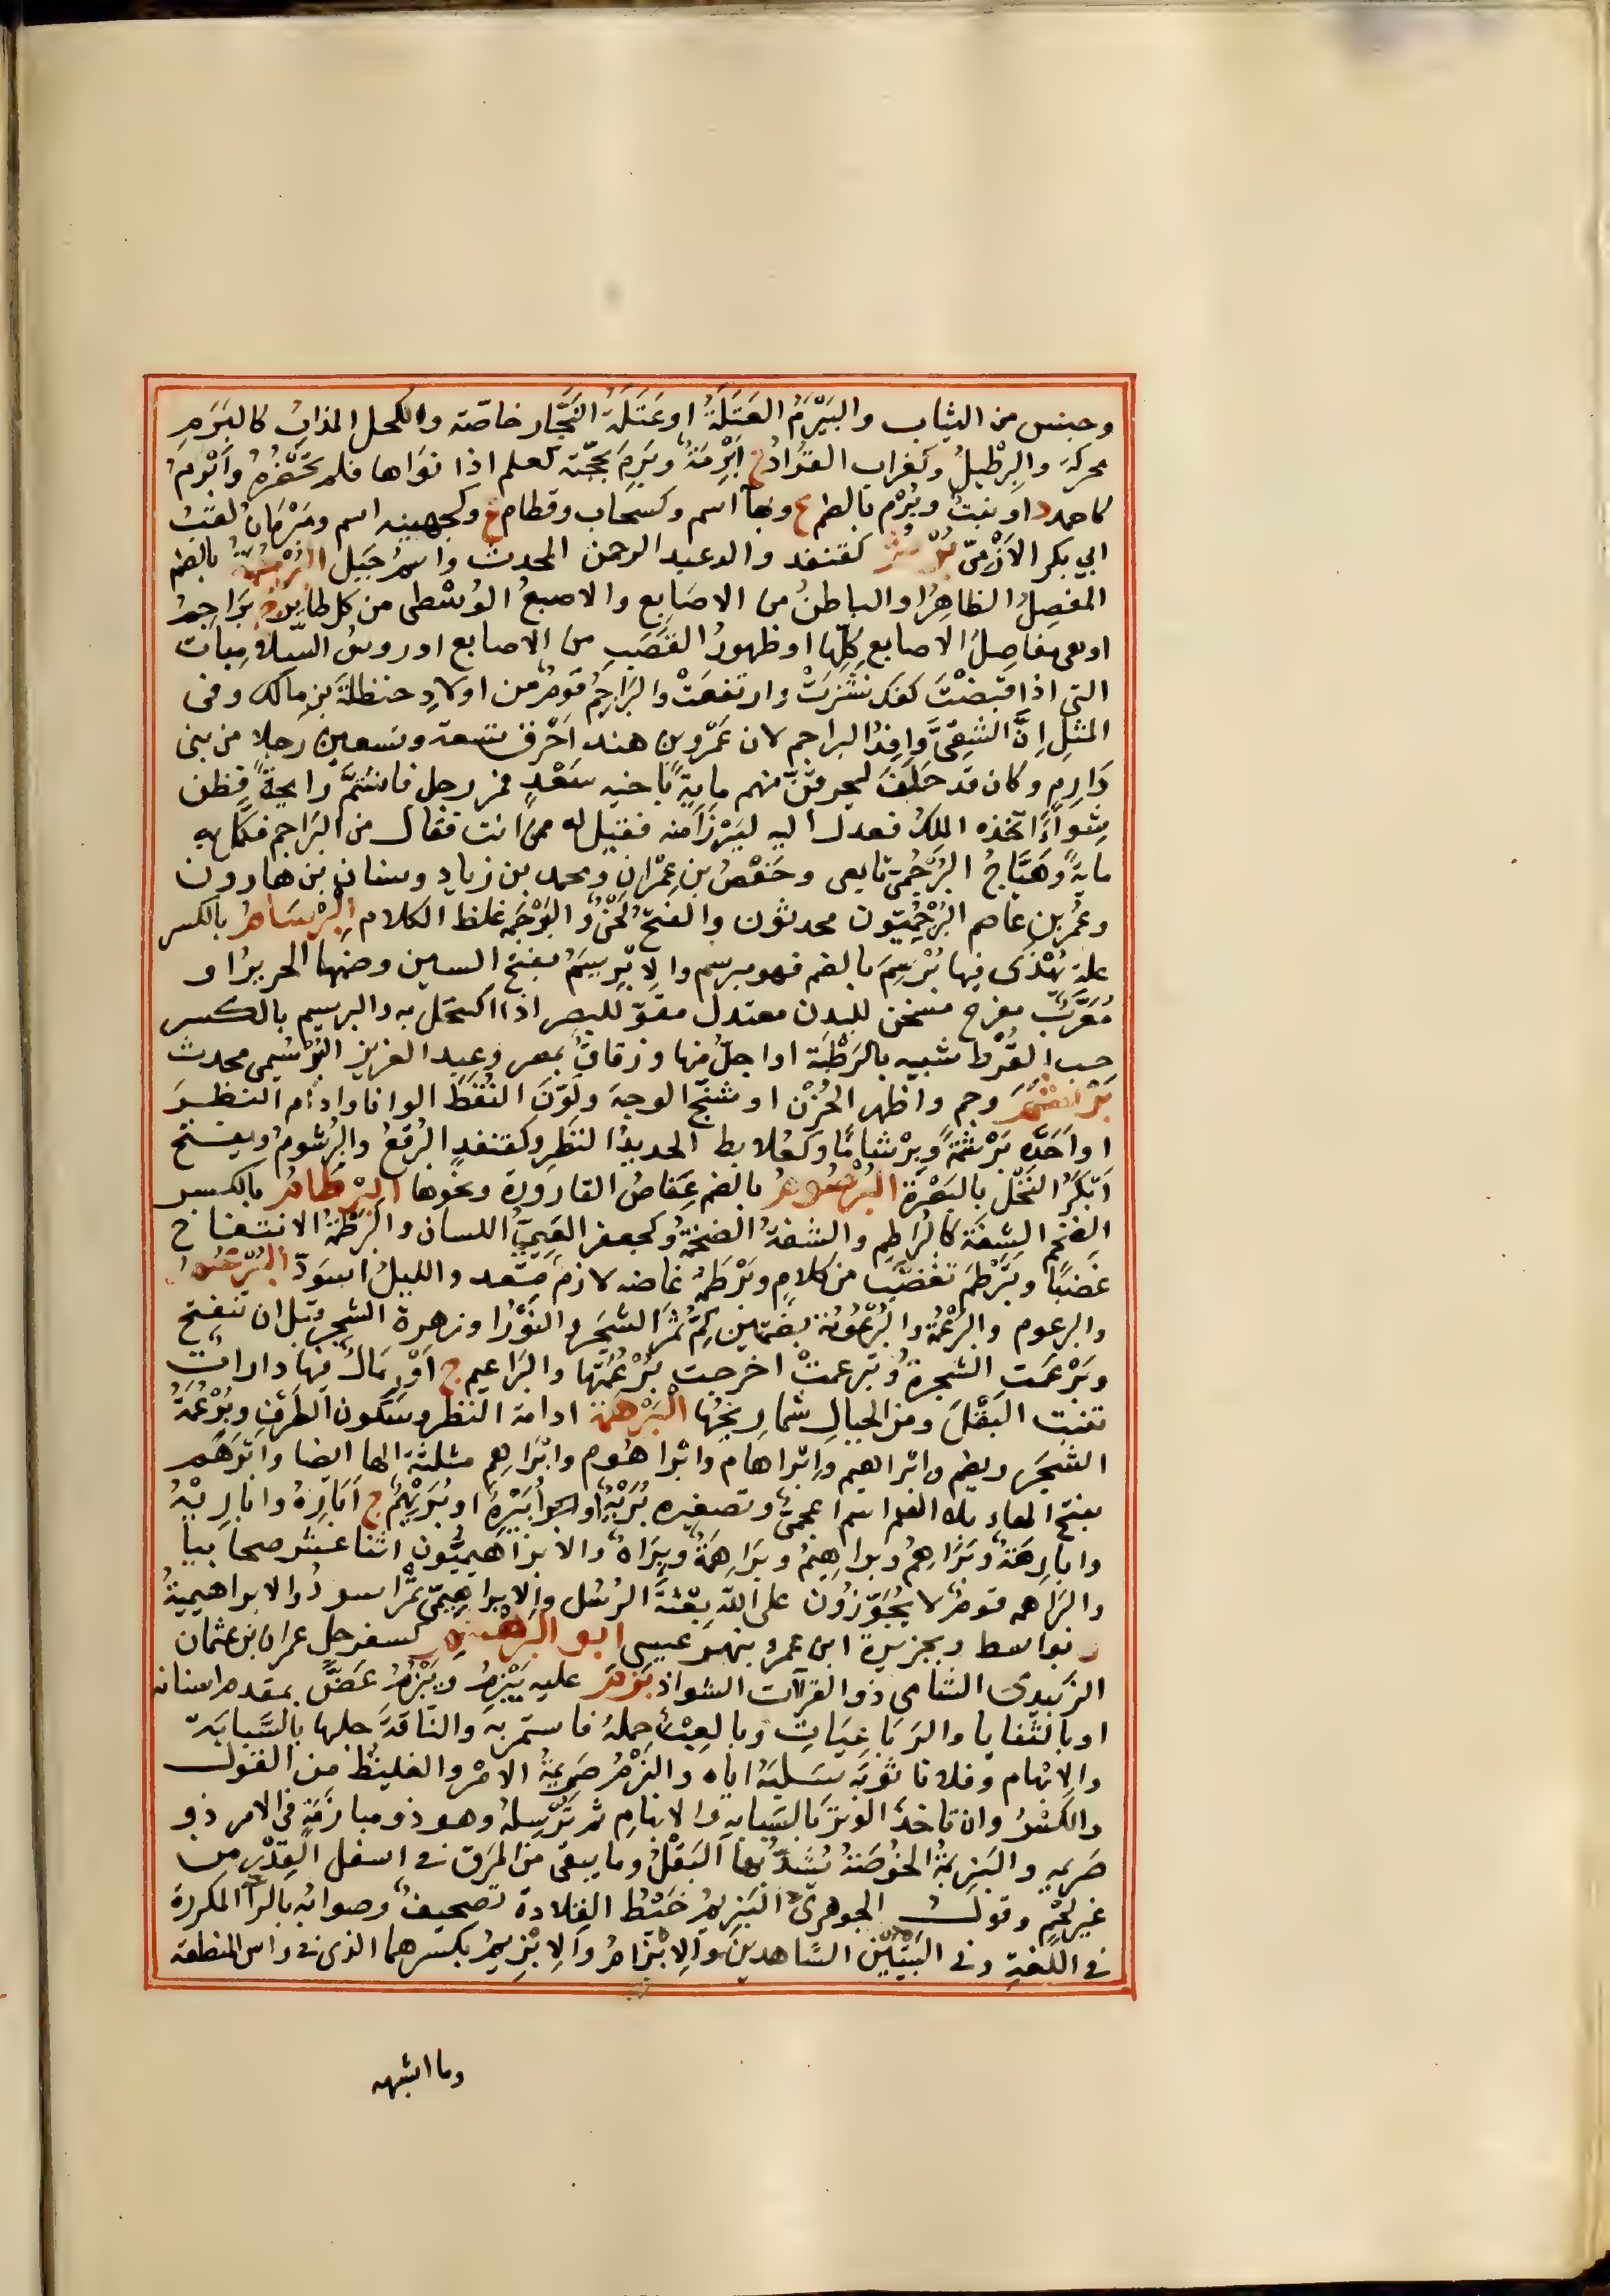 وجنس من الثياب والبَيْرَمُ العَتَلَةُ او عَتَلَةُ النَّجَّار خاصّة والكحل المذابُ كالبَرَمِ
محركة والبِرْطيلُ وكغراب القُرادُ ج اَبْرِمَةٌ وبَرِمَ بحجّته كعلم اذا نوَاها فلم تَحْضُرْهُ وأَبْرَمُ
كاحمد د او نبتٌ وبُرْم بالضم ع وبهآ اسم وكسَحاب وقطام ع وكجهينه اسم وبَرْمَانُ لقبُ
ابي بكر الأزَميّ بُرْثمٌ كقنفذ والد عبد الرحمن المحدث واسمُ جَبَل البُرْجُمَةُ بالضم
المفصِلُ الظاهِرُ او الباطنُ من الاصَابع والاصبعُ الوُسْطى من كل طائر ج بَرَاجِمُ
او هى مفاصِلُ الاصابع كلِّها او ظهورُ القَصَبِ من الاصابع او روسُ السّلاميات
التى اذا قبَضْتَ كفك نشَزَتْ وارتفعَتْ والبَرَاجِمُ قومٌ من اولادِ حنظلةَ بنِ مالك وفى
المثلِ اِنَّ الشقِىَّ وافِدُ البراجم لان عَمْرو بن هند اَحْرق تسعة وتسعين رجلا من بنى
دَارِمٍ وكان قد حَلَفَ ليحرقَنَّ منهم مايةً باخيه سَعْدٍ فمر رجل فاشتمَّ رايحةً فظن
شِوآءً اتخذه الملكُ فعدل اليه ليَرْزَأ منه فقيل له ممن انت فقال من البَراجم فكمَّل به
مايةً وهَيَّاجُ البُرْجُمىّ تابعى وحَفْصُ بن عِمْران ومحمد بن زياد وسنان بن هارون
وعُمر بن عاصم البُرْجُمِيّون محدثون والفتحُ لَحْنٌ والبَرْجَمَه غلظ الكلام البِرْسَامُ بالكسر
علة يُهْذَى فيها بُرْسِمَ بالضم فهو مبرسم والاِبْرِيسَمُ بفتح السين وضمّها الحريرُ او
مُعَرَّبٌ مفرح مسخن للبدن معتدل مقوّ للبصر اذا اكتحل به والبرسيم بالكسر
حب القُرْط شبيه بالرَطْبَة او اجلّ منها وزقاقٌ بمصر وعبد العزيز البُرْسُيمى محدث
بَرْشَمَ وجم واظهر الحُزْن او شنّج الوجه ولَوّنَ النُقَطَ الوانا وادام النظرَ
او اَحَدَّه بَرْشَمَةً وبِرْشامًا وكعُلابط الحديدُ النَظَرِ وكقنفذٍ البُرْقعُ والبُرْشُومُ ويفتح
اَبْكَرُ النَخْل بالبَصْرة البُرْصُومُ بالضم عِفاصُ القارورة ونحوها البِرْطَامُ بالكسر
الضخم الشِفَة كالبُرَاطِم والشفةُ الضخمَةُ وكجعفر العَيِىُّ اللسان والبَرْطَمَةُ الانتفاخ
غَضَبًا وتَبَرْطمَ تغضّبَ من كلامٍ وبَرْطَمَهُ غاضه لازم متعد والليلُ اسوَدّ البُرْعُمُ
والبرعوم والبُرْعُمَةُ والبُرْعُومَةُ بضمّتين كِمُّ ثَمَرِ الشجَر والنَوْرُ او زهرة الشجر قبل ان تنفتح
وبَرْعَمَت الشجرةُ وتبرعمتْ اخرجت بُرْعُمَتَها والبَرَاعيم ج او رِمَالٌ فيها دارات
تنبت البَقْلَ ومن الجبالِ شماريخُها البَرْهَمَةُ ادامة النظر وسكون الطَرْفِ وبُرْعُمَةُ
الشجَر ويضم وابراهيم وابراهام وابراهوم وابْرَاهِم مثلثة الها ايضا وابْرَهَم
بفتح الهاء بلا الف اسم اعجمىٌ وتصغيره بُرَيْهٌ او اُبَيْرِهٌ او بُرَيْهِيمٌ ج اَبَارِهُ وابارِيهُ
وابارِهَةٌ وبَرَاهِمُ وبراهِيمُ وبَرَاهِمَةٌ وبِرَاهٌ والابراهيميُّون اثنا عشر صحابيا
والبَراهمه قومٌ لا يُجَوِّزُونَ على اللّه بِعْثةَ الرُسُل والابراهِيمىّ تَمْرٌ اسودُ والابراهيمية
ة بواسط وبجزيرة ابن عمر وبنهر عيسى ابو البَرَهْسَمِ كسفرجل عمران بن عثمان
الزبيدى الشامى ذو القرآت الشواذ بَزَمَ عليه يَبْزِمُ ويَبْزُمُ عَضَّ بمقدم اسنانه
او بالثنايا والرَبَاعِيَاتِ وبالعِبْءِ حملهُ فاستمر به والناقةَ حلبها بالسَّبابةِ
والابْهام وفلانا ثوبَه سَلَبَهُ اياه والبَزْمُ صَرِيمَةُ الامر والغليظُ من القول
والكَسْرُ وان تاخذَ الوتَرَ بالسَبابةِ والابهامِ ثم تُرْسِلهُ وهو ذو مبازَمَةٍ فى الامر ذو
صَرِيمهٍ والبَزِيمَةُ الخُوصَةُ يُشَدُّ بها البَقْلُ وما يبقى من المرَق فى اسفل القِدْرِ من
غير لَحْمٍ وقول الجوهرىّ البَزِيمُ خَيْطُ القِلادة تصحيفٌ وصوابُه بالرآ المكررة
فى اللّغةِ وفى البَيْتَيْن الشاهدين والاِبْزَامُ والاِبْزِيمُ بكسرهما الذى فى راس المنطقة
وما اشبهه